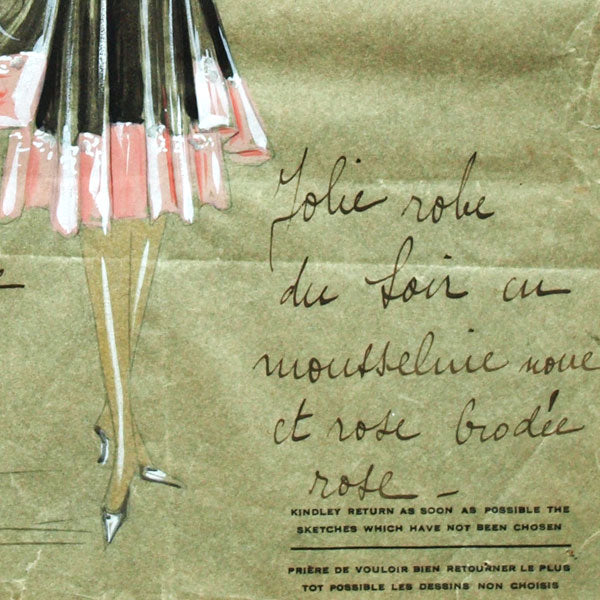 Jolie robe
du Soir en
mousseline noire
et rose brodée
rose -
KINDLEY RETURN AS SOON AS POSSIBLE THE
SKETCHES WHICH HAVE NOT BEEN CHOSEN
PRIÈRE DE VOULOIR BIEN RETOURNER LE PLUS
TOT POSSIBLE LES DESSINS NON CHOISIS